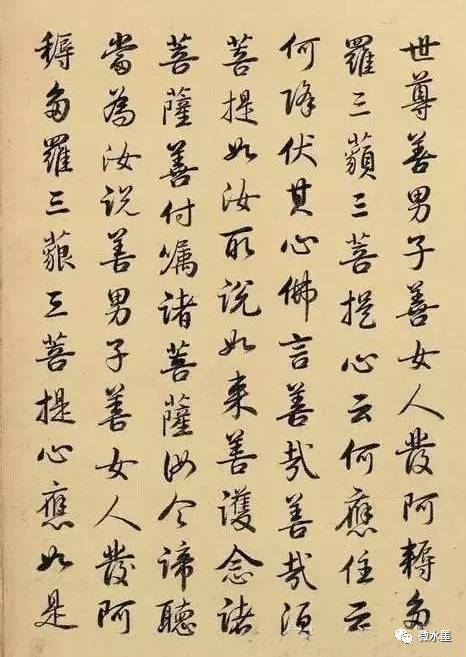 世尊善男子善女人發阿耨多
羅三藐三菩提心云何應住云
何降伏其心佛言善哉善哉須
菩提如汝所說如來善護念諸
菩薩善付嘱諸菩薩汝今諦聽
當為汝說善男子善女人發阿
耨多羅三藐三菩提心應如是
微水墨